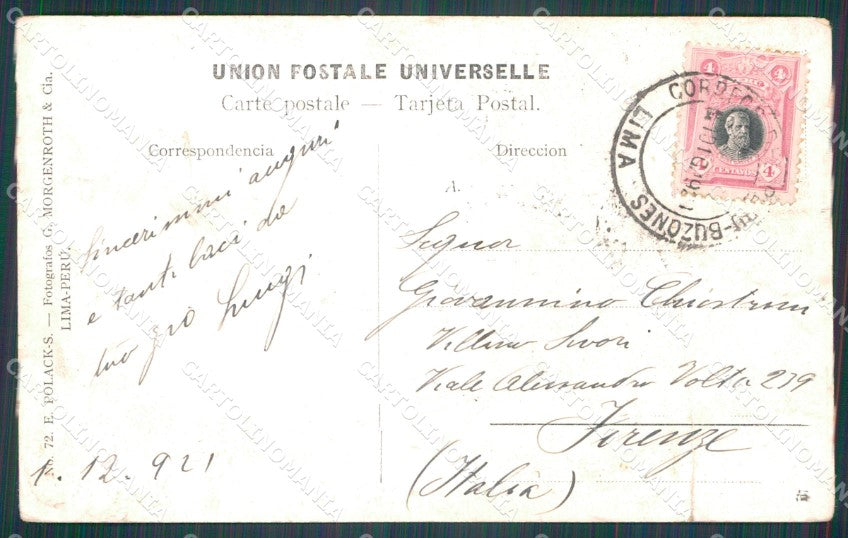 UNION POSTALE UNIVERSELLE
Carte postale — Tarjeta Postal.
Correspondencia
Direccion
A.
4 4
CENTAVOS
4
LIMA
BUZONES
Sincerissimi auguri
e tanti baci da
tuo zio Luigi
1. 12. 921
Signor
Giovannino
Villino
Viale Alessandro Volta 239
Firenze
(Italia)
No. 72. E. POLACK-S. — Fotografos G. MORGENROTH & Cia.
LIMA-PERÚ.
CARTOLINOMANIA